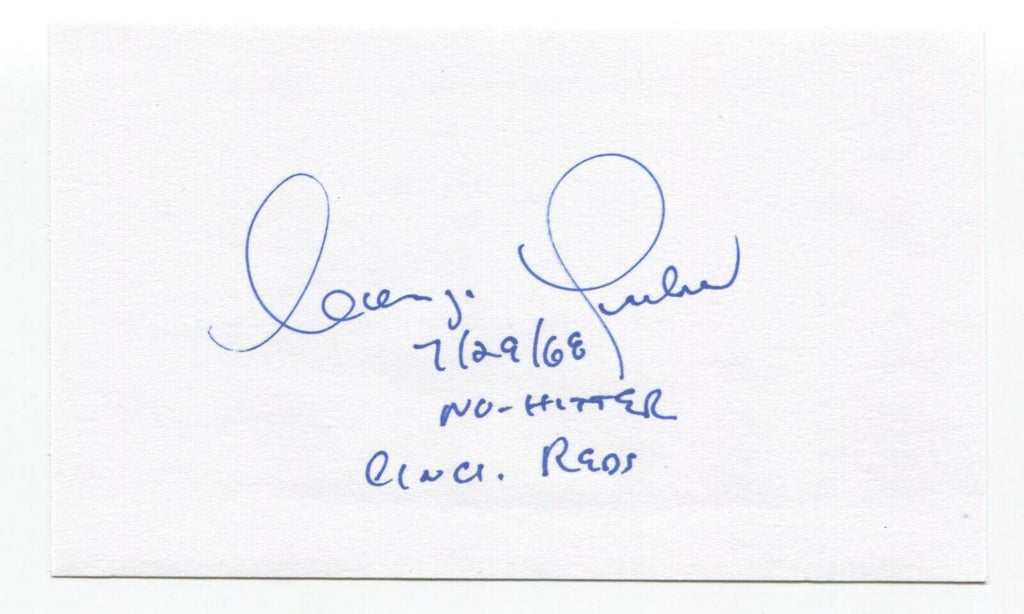 George Culver
7/29/68
NO-HITTER
CINCI. REDS